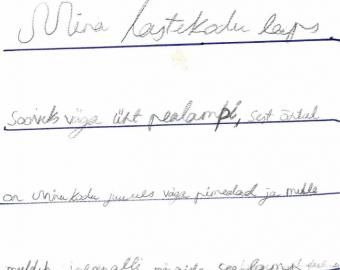 Mina lastekodu laps
Sooviks väga üht pealampi, sest õhtul
on minu kodu juures väga pimedad ja mulle